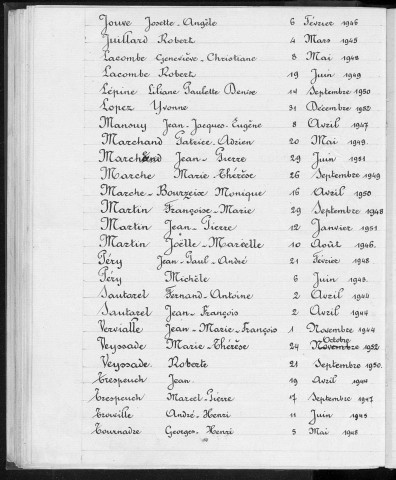 Jouve Josette-Angèle 6 Février 1946
Juillard Robert 4 Mars 1945
Lacombe Geneviève-Christiane 8 Mai 1948
Lacombe Robert 19 Juin 1949
Lépine Liliane Paulette Denise 14 Septembre 1950
Lopez Yvonne 31 Décembre 1952
Mansuy Jean-Jacques-Eugène 8 Avril 1947
Marchand Patrice-Adrien 20 Mai 1949
Marchand Jean-Pierre 29 Juin 1951
Marche Marie Thérèse 26 Septembre 1949
Marche-Bourzeix Monique 16 Avril 1950
Martin Françoise-Marie 29 Septembre 1948
Martin Jean-Pierre 12 Janvier 1951
Martin Joëlle-Marcelle 10 Août 1946
Péry Jean-Paul-André 21 Février 1948
Péry Michèle 6 Juin 1949
Sautarel Fernand-Antoine 2 Avril 1944
Sautarel Jean-François 2 Avril 1944
Vervialle Jean-Marie-François 1 Novembre 1944
Octobre
Veyssade Marie-Thérèse 24 Novembre 1952
Veyssade Roberte 21 Septembre 1950
Trespeuch Jean 19 Avril
Trespeuch Marcel-Pierre 17 Septembre 1947
André-Henri 11 Juin 1945
Tournadre Georges-Henri 5 Mai 1948